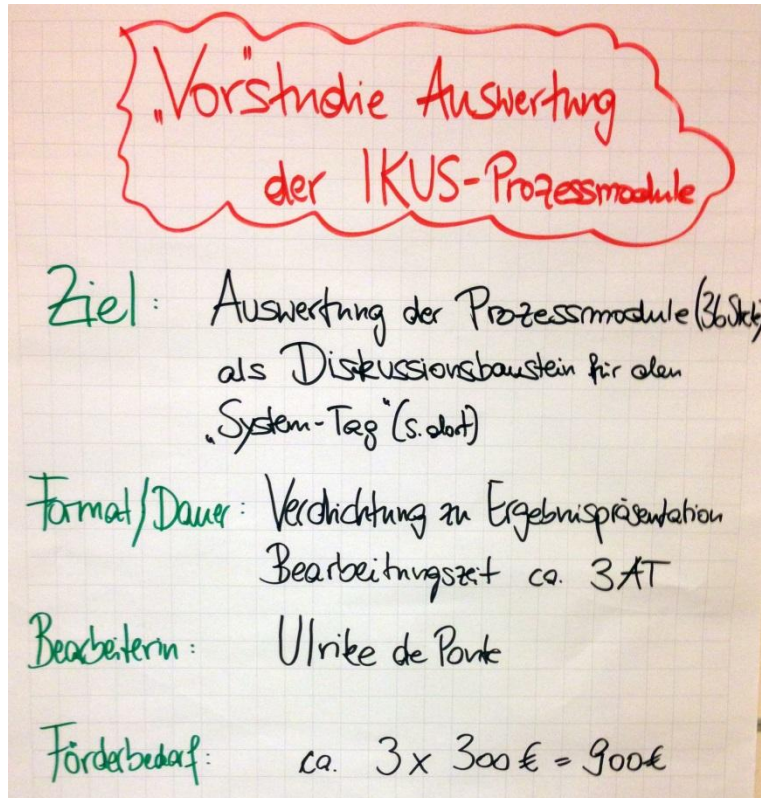 „Vor"studie Auswertung
der IKUS-Prozessmodule
Ziel: Auswertung der Prozessmodule (36 Stck)
als Diskussionsbaustein für den
„System-Tag" (s. dort)
Format/Dauer: Verdichtung zu Ergebnispräsentation
Bearbeitungszeit ca. 3 AT
Bearbeiterin: Ulrike de Ponte
Förderbedarf: ca. 3 x 300 € = 900 €